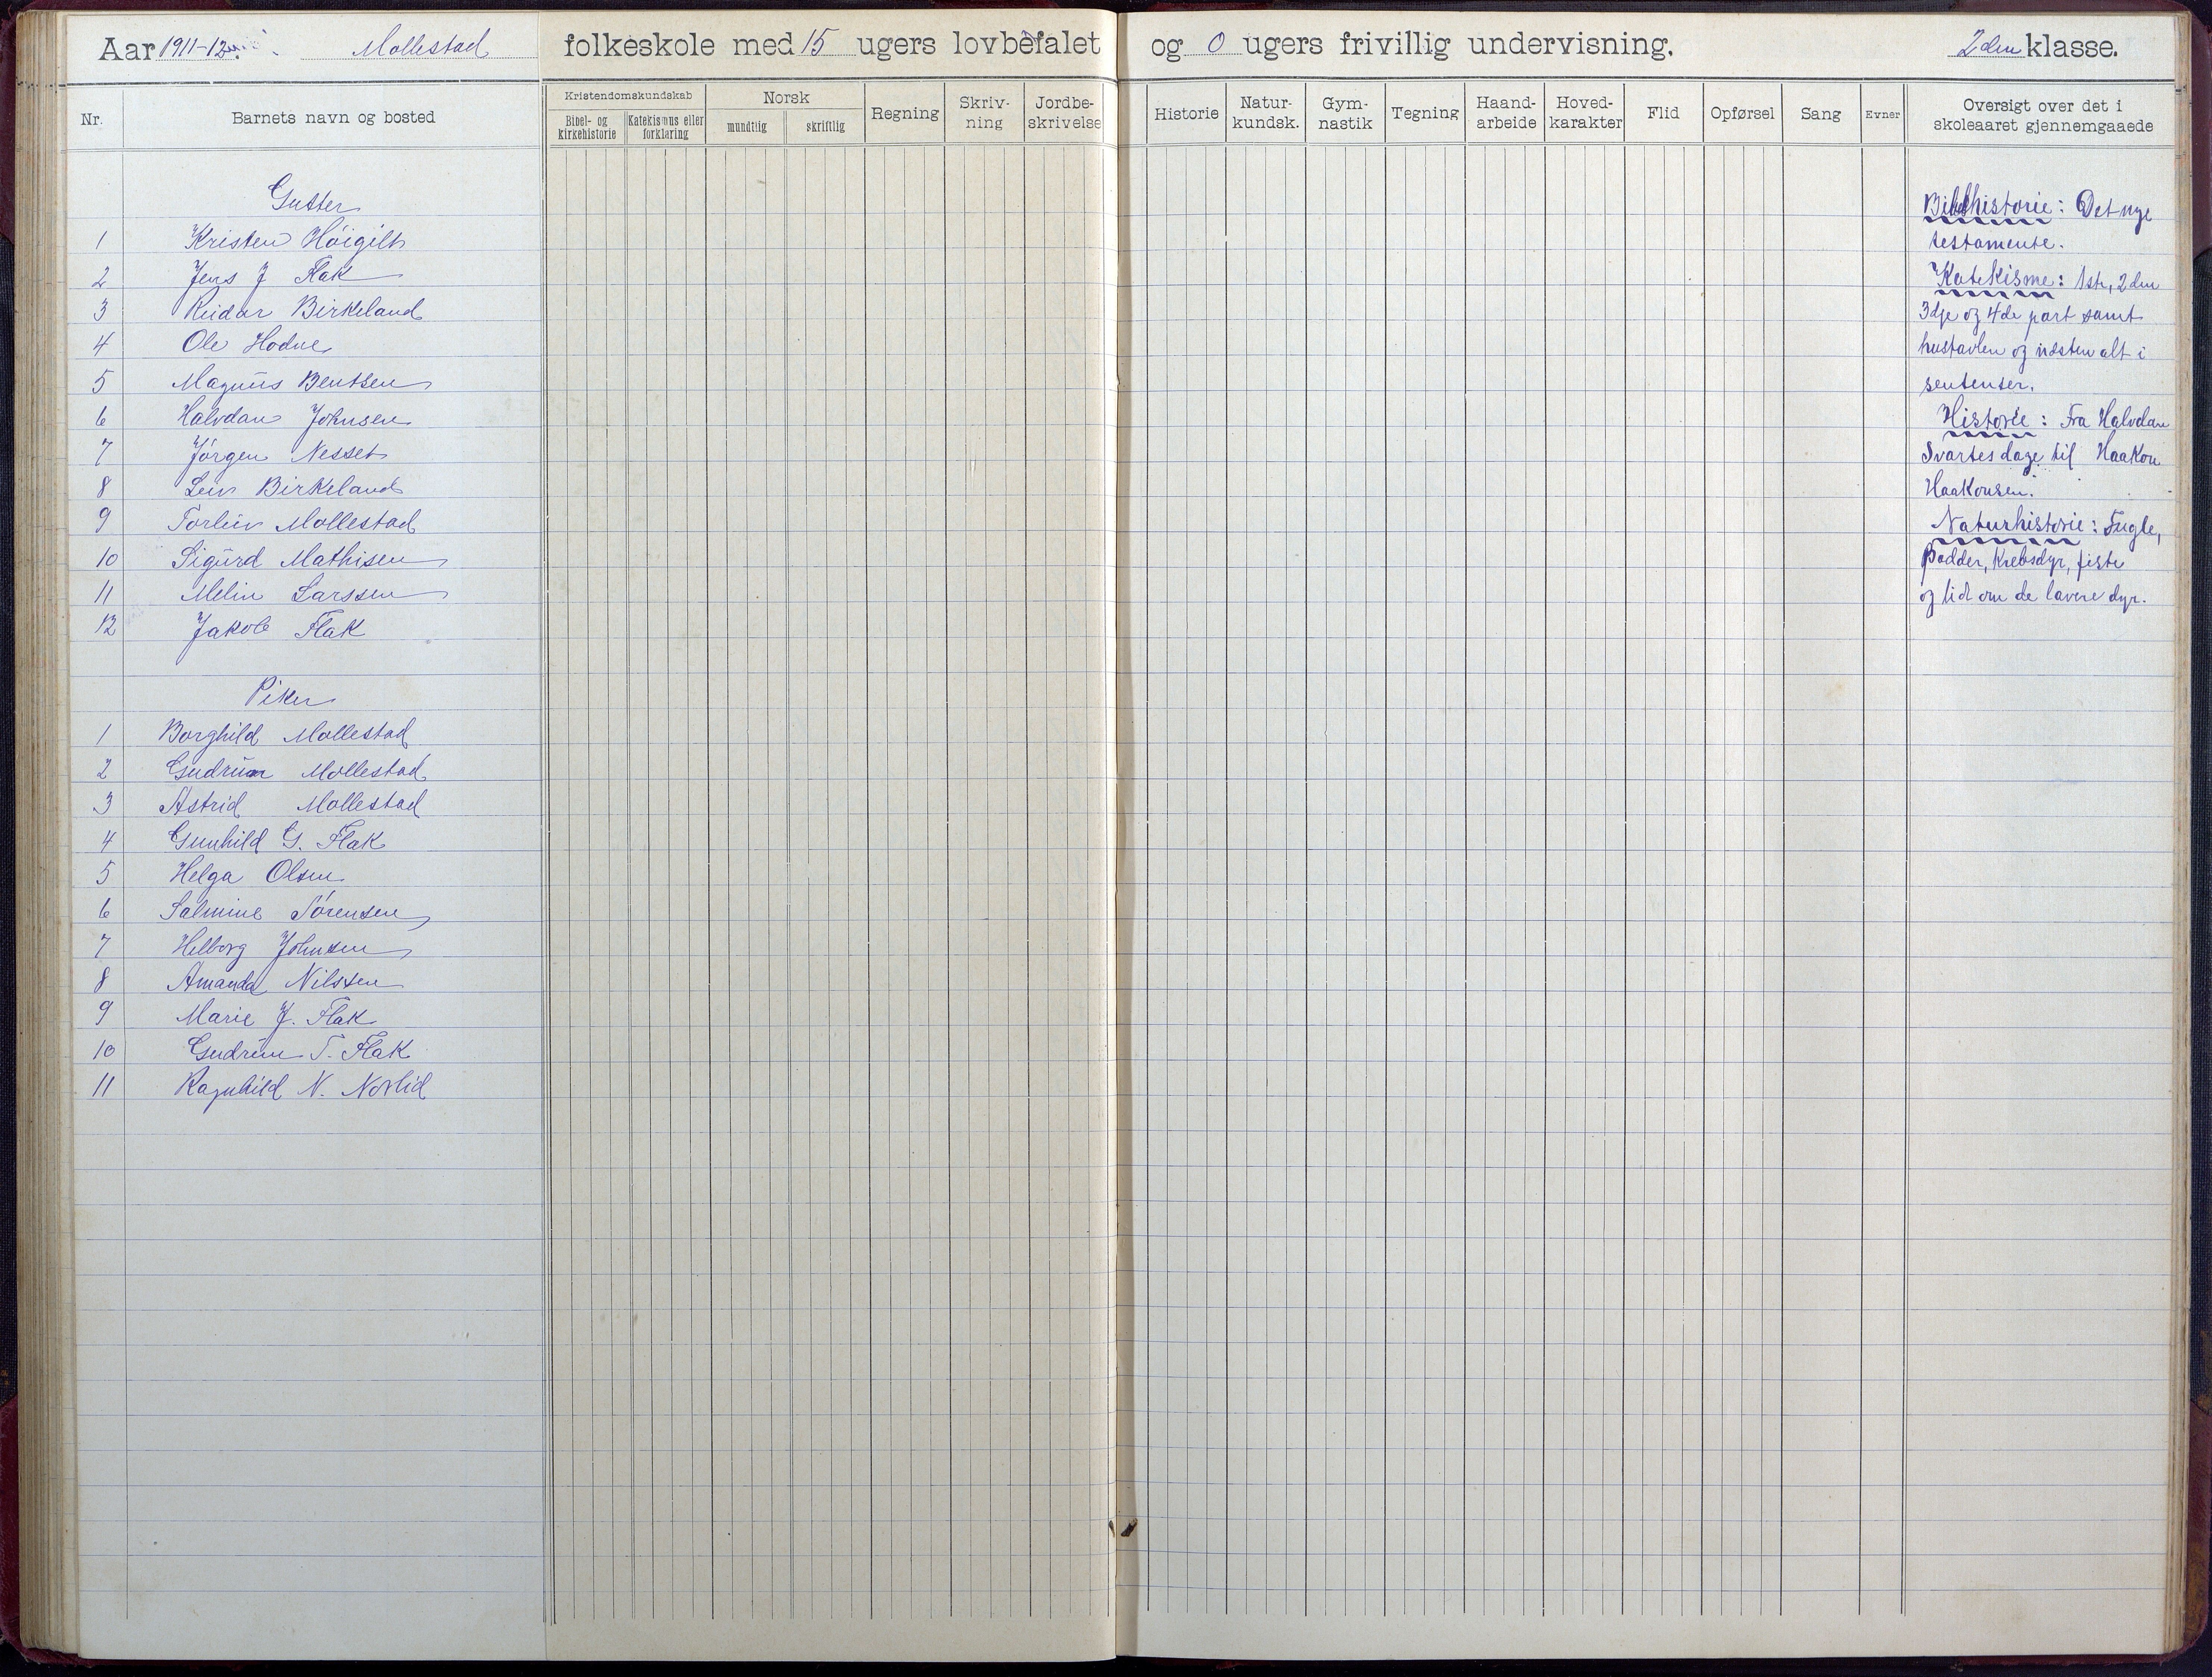 Aar 1911-12. Mollestad folkeskole med 15 ugers lovbefalet og 0 ugers frivillig undervisning. 2den klasse.
Nr. Barnets navn og bosted Kristendomskundskab Bibel- og kirkehistorie Katekismus eller forklaring Norsk mundtlig skriftlig Regning Skriv-ning Jordbe-skrivelse Historie Natur-kundsk. Gym-nastik Tegning Haand-arbeide Hoved-karakter Flid Opførsel Sang Evner Oversigt over det i skoleaaret gjennemgaaede
Gutter
1 Kristen Höigilt
2 Jens J Flak
3 Reidar Birkeland
4 Ole Hodne
5 Magnus Bentsen
6 Halvdan Johnsen
7 Jörgen Nesset
8 Leiv Birkeland
9 Torleiv Mollestad
10 Sigurd Mathisen
11 Melin Larssen
12 Jakob Flak
Piker
1 Borghild Mollestad
2 Gudrun Mollestad
3 Astrid Mollestad
4 Gunhild G. Flak
5 Helga Olsen
6 Salmine Sörensen
7 Helborg Johnsen
8 Amanda Nilssen
9 Marie J. Flak
10 Gudrun T. Flak
11 Ragnhild N. Norlid
Bibelhistorie: Det nye
testamente.
Katekisme: 1ste, 2den
3dje og 4de part samt
hustavlen og næsten alt i
sentenser.
Historie: Fra Halvdan
Svartes dage til Haakon
Haakonsen.
Naturhistorie: Fugle,
Padder, Krebsdyr, fiske
og lidt om de lavere dyr.